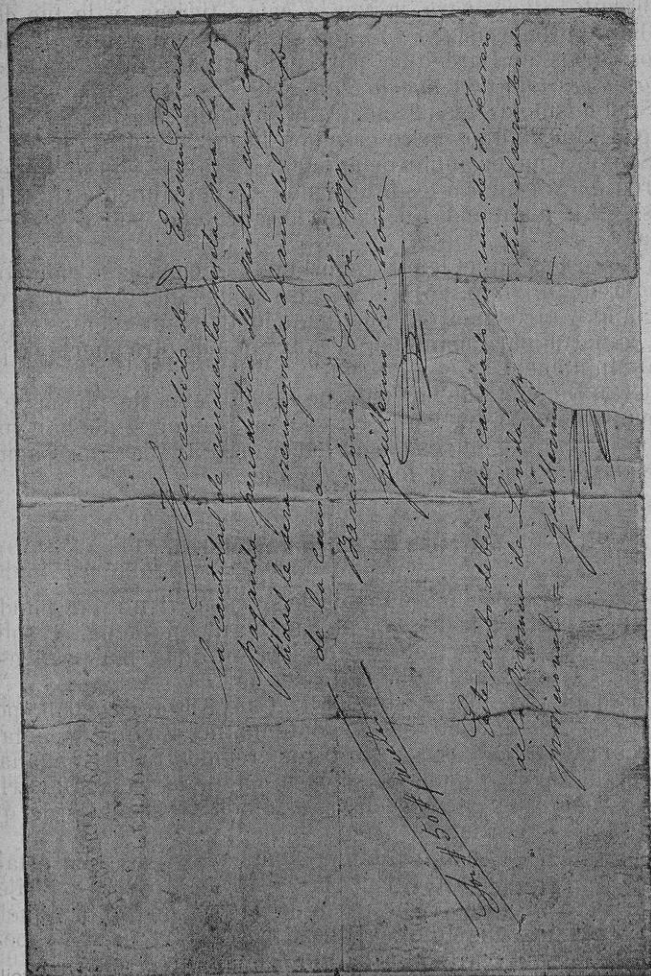 He recibido de D Esteban Pascual
la cantidad de cincuenta pesetas para la pro
paganda periodistica del partido cuya can
tidad le sera reintegrada al año del triunfo
de la causa
Barcelona 7 Sepbre 1899
Guillermo B. Moore
Son # 50 # pesetas
Este recibo debera ser cangeado por uno del Sr. Tesorero
de la Provincia de Lerida y tiene el caracter de
provicional
Guillermo